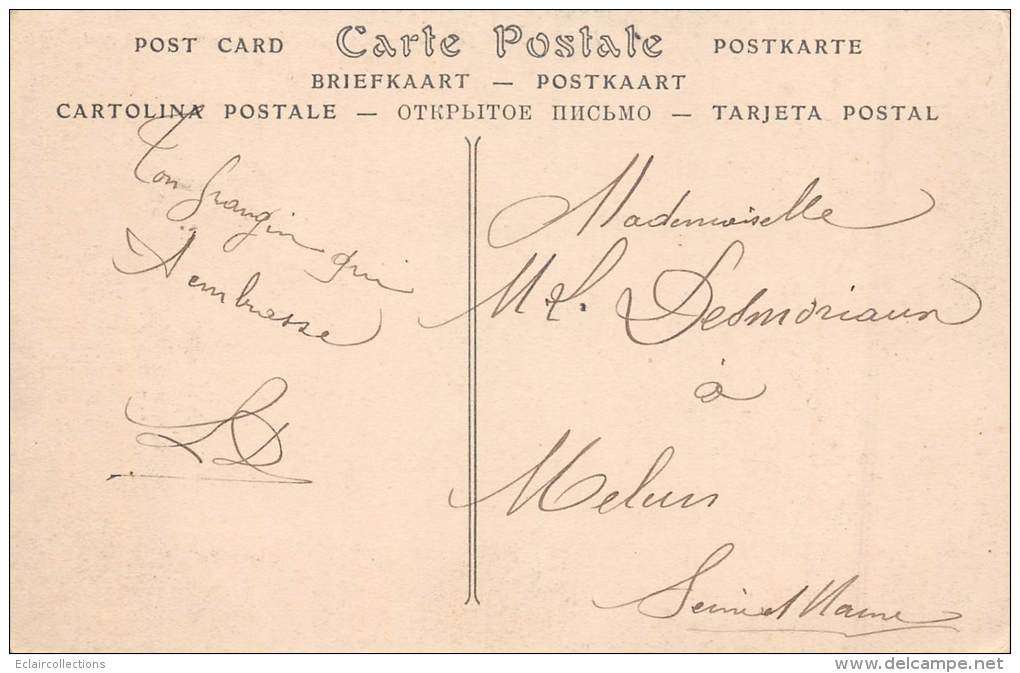 POST CARD Carte Postale POSTKARTE
BRIEFKAART — POSTKAART
CARTOLINA POSTALE — ОТКРЫТОЕ ПИСЬМО — TARJETA POSTAL
Ton frangin qui
t'embrasse
LD
Mademoiselle
M. L. Desmoriaux
à
Melun
Seine et Marne
Eclaircollections
www.delcampe.net